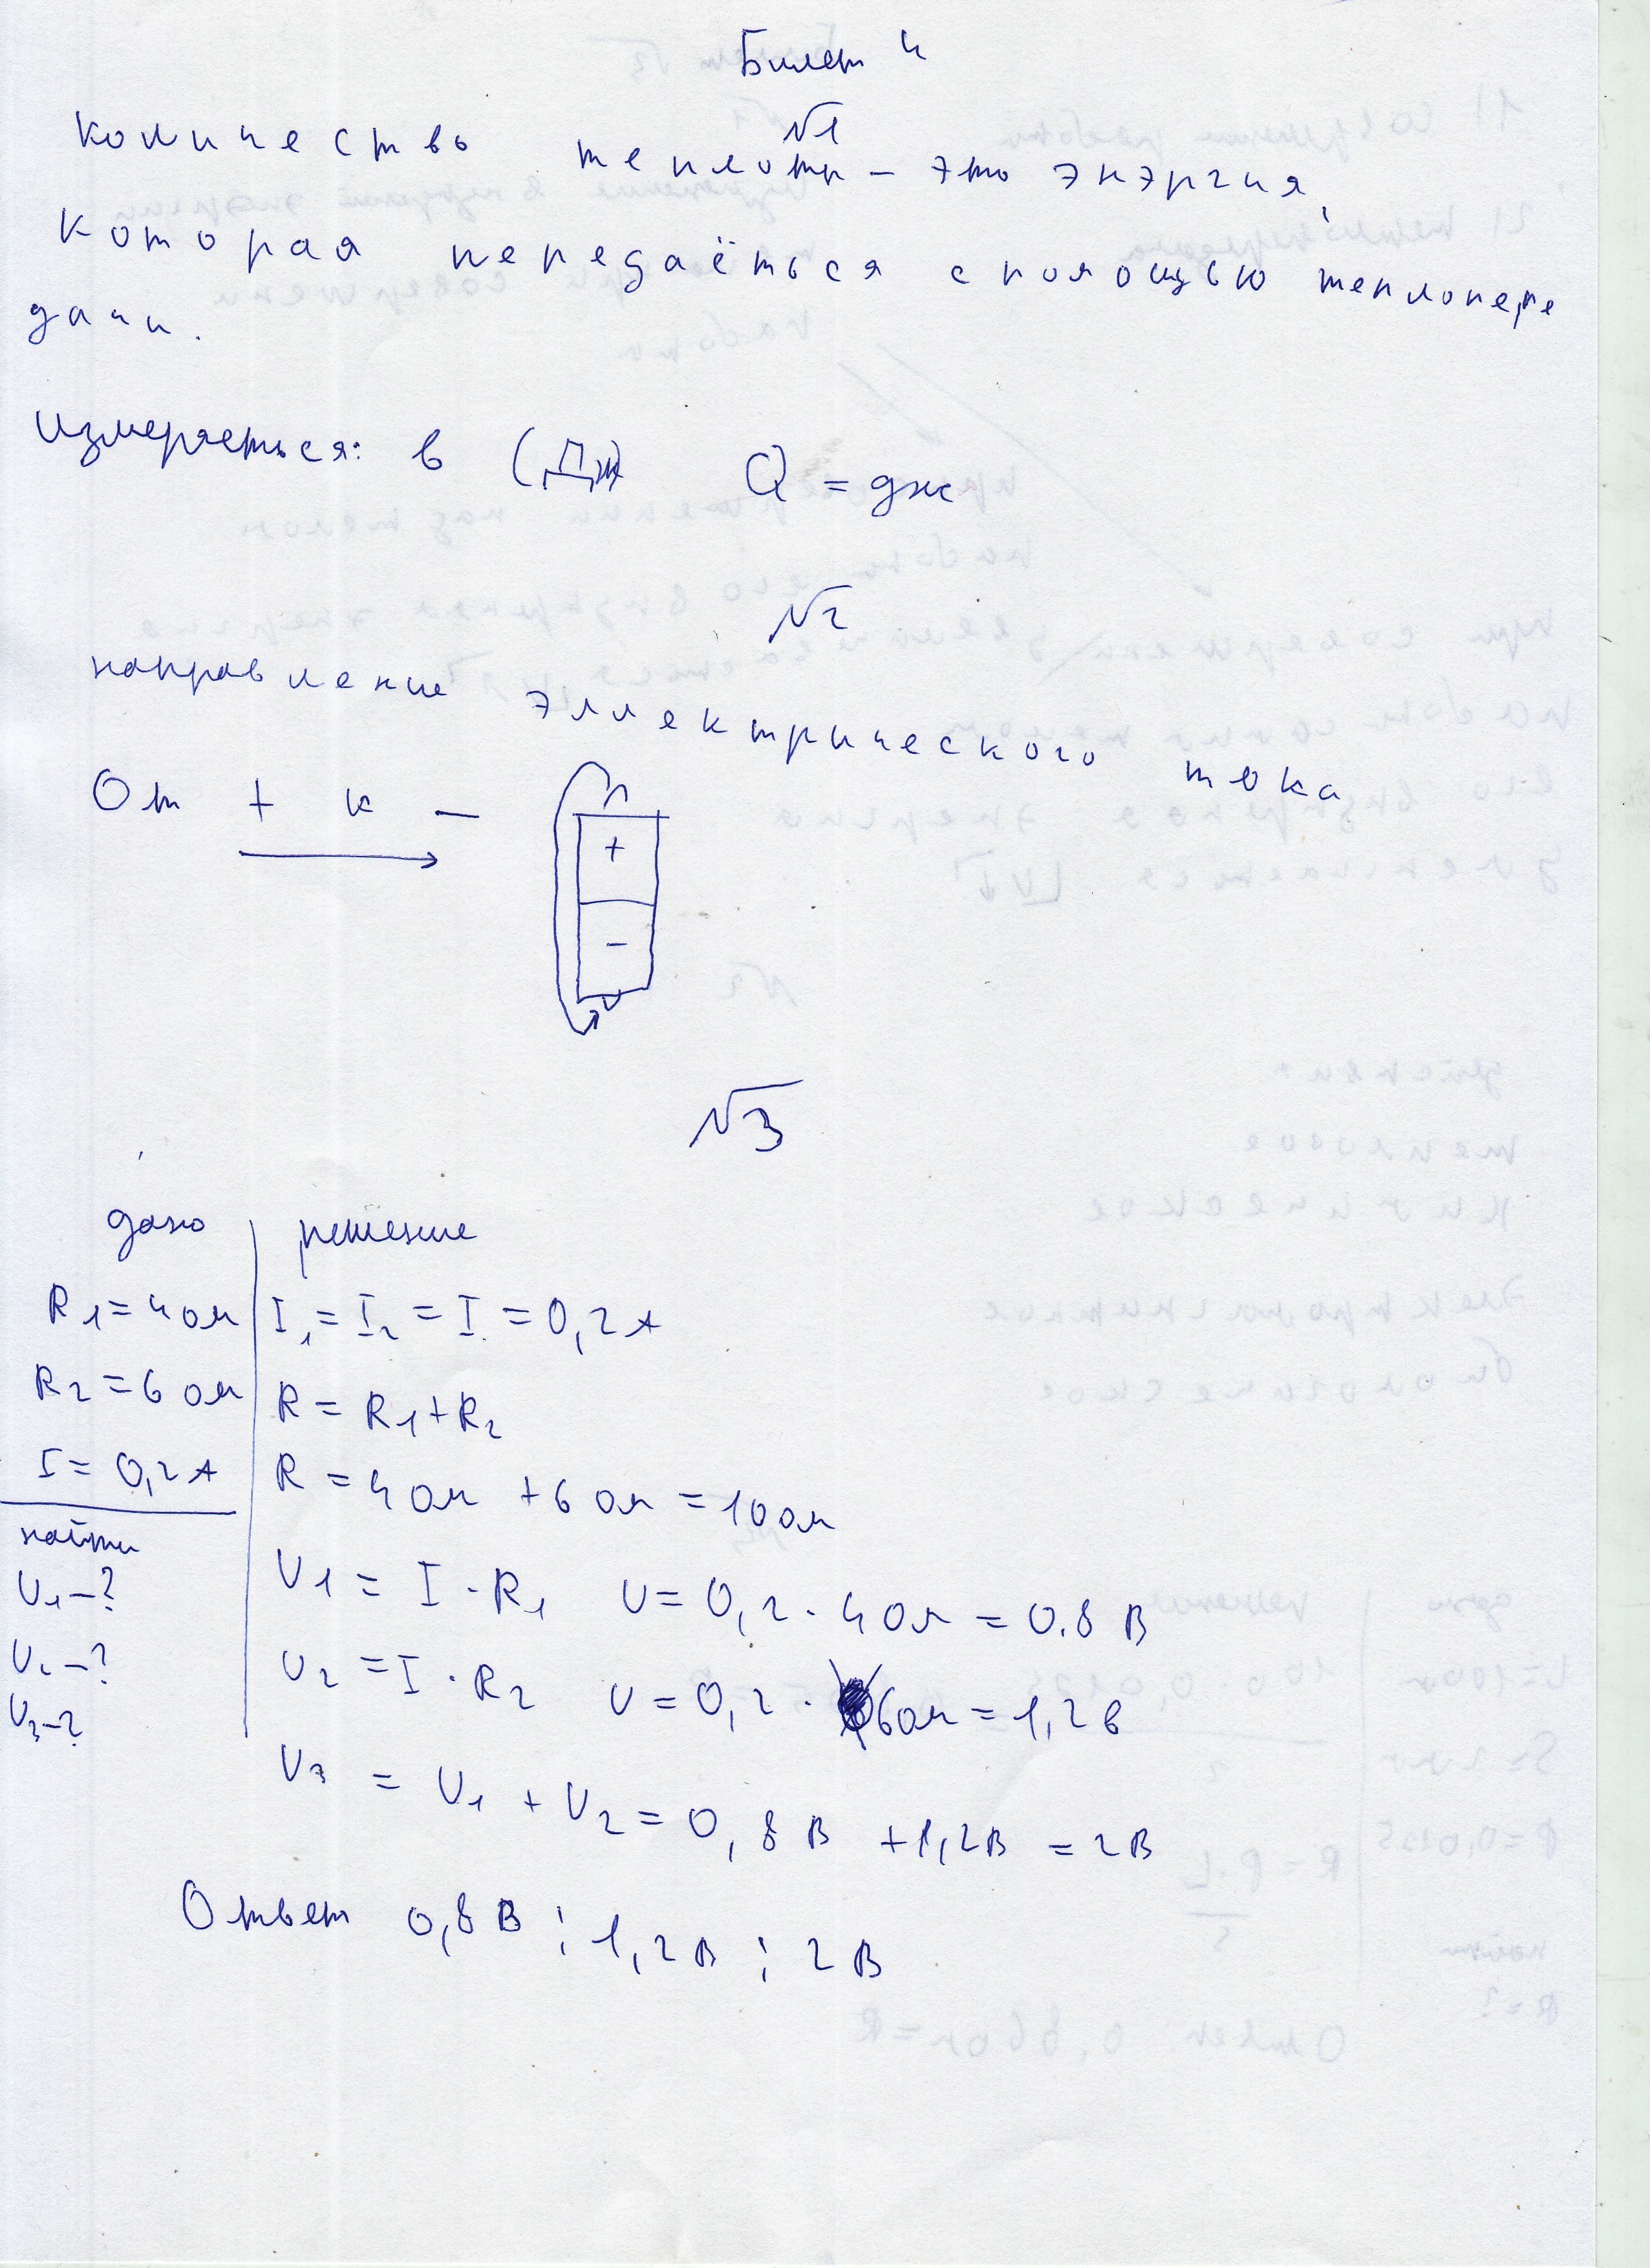 Билет 4
№1
количество теплоты – это энэргия,
которая передаёться с помощью теплопере
дачи.
Измеряеться: в (Дж) Q = дж
№2
направление эллектрического тока
От + к –
+
–
№3
дано решение
R1=4ом I1 = I2 = I = 0,2А
R2=6ом R = R1+R2
I = 0,2А R = 4ом +6ом = 10ом
найти
U1–? U1 = I · R1 U = 0,2 · 4ом = 0.8 В
U2–? U2 = I · R2 U = 0,2 · 6ом = 1,2в
U3–? U3 = U1 + U2 = 0,8В +1,2В = 2В
Ответ 0,8В ; 1,2В ; 2В